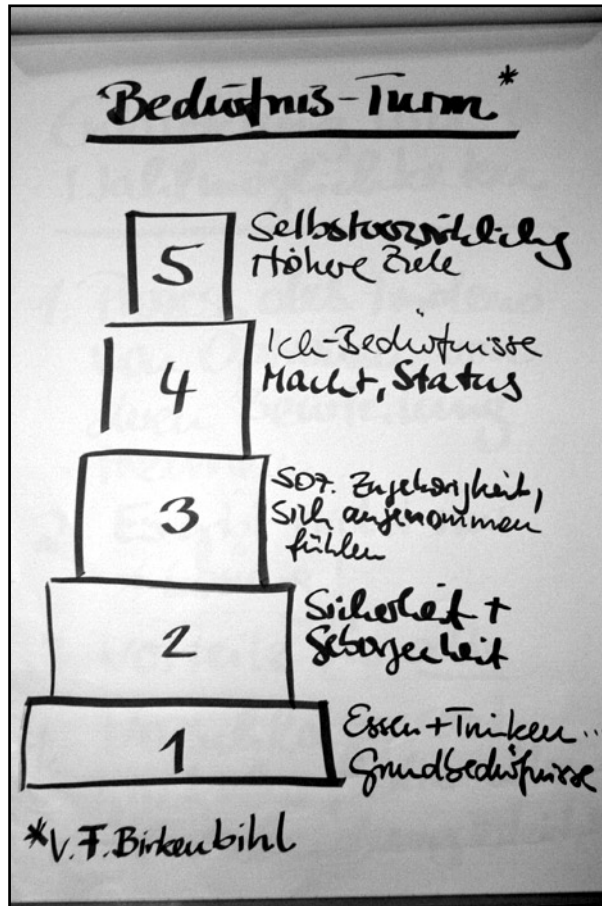 Bedürfnis-Turm*
5
Selbstverwirklichg
Höhere Ziele
4
Ich-Bedürfnisse
Macht, Status
3
soz. Zugehörigkeit,
sich angenommen
fühlen
2
Sicherheit +
Geborgenheit
1
Essen + Trinken..
Grundbedürfnisse
*V. F. Birkenbihl